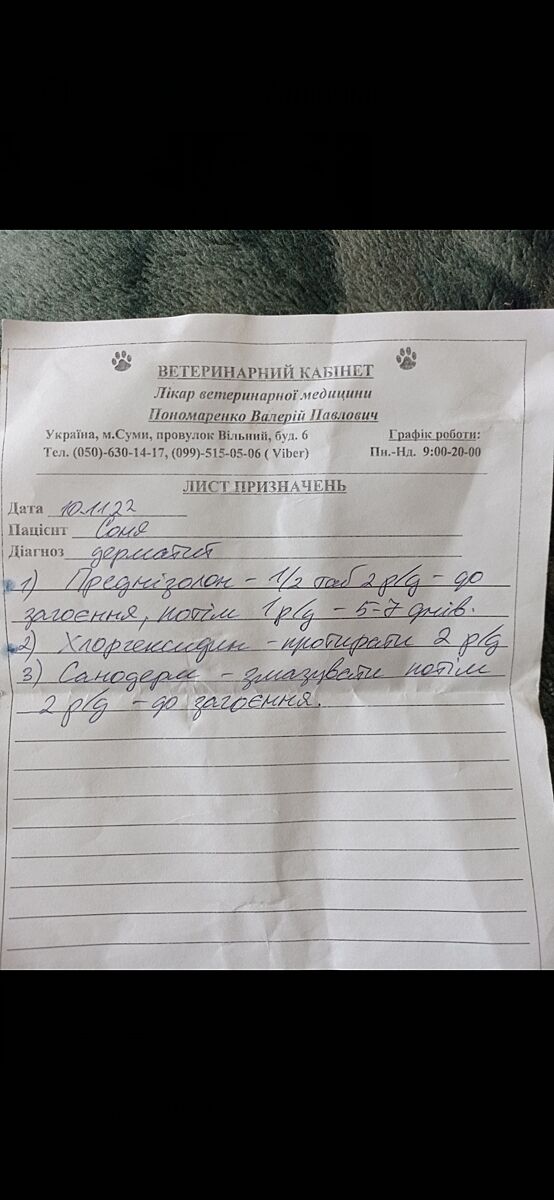 ВЕТЕРИНАРНИЙ КАБІНЕТ
Лікар ветеринарної медицини
Пономаренко Валерій Павлович
Україна, м.Суми, провулок Вільний, буд. 6
Графік роботи:
Тел. (050)-630-14-17, (099)-515-05-06 ( Viber)
Пн.-Нд. 9:00-20-00
ЛИСТ ПРИЗНАЧЕНЬ
Дата 10.11.22
Пацієнт Соня
Діагноз дерматит
1) Преднізолон - 1/2 таб 2 р/д - до
загоєння, потім 1 р/д - 5-7 днів.
2) Хлоргексидин - протирати 2 р/д
3) Санодерм - змазувати потім
2 р/д - до загоєння.